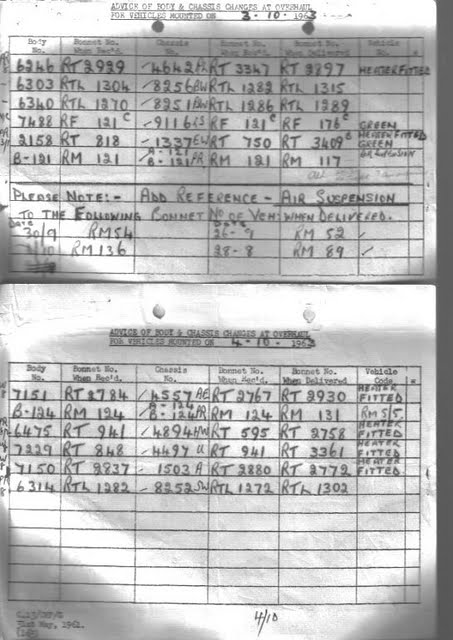 ADVICE OF BODY & CHASSIS CHANGES AT OVERHAUL
FOR VEHICLES MOUNTED ON 3-10-1963
Body No. Bonnet No. When Rec'd. Chassis No. Bonnet No. When Rec'd. Bonnet No. When Delivered Vehicle
6246 RT 2929 4642 RT 3347 RT 2897 HEATER FITTED
6303 RTL 1304 8256 RTL 1282 RTL 1315
6340 RTL 1270 8251 RTL 1286 RTL 1289
7488 RF 121 C 9116 LS RF 121 C RF 176 C GREEN
2158 RT 818 1337 RT 750 RT 3409 HEATER FITTED GREEN
B-121 RM 121 B-121 RM 121 RM 117
PLEASE NOTE:- ADD REFERENCE - AIR SUSPENSION
TO THE FOLLOWING BONNET NO OF VEH: WHEN DELIVERED.
DATE DATE
30/9 RM 54 26-9 RM 52
RM 136 28-8 RM 89
ADVICE OF BODY & CHASSIS CHANGES AT OVERHAUL
FOR VEHICLES MOUNTED ON 4-10-1963
Body No. Bonnet No. When Rec'd. Chassis No. Bonnet No. When Rec'd. Bonnet No. When Delivered Vehicle Code
7151 RT 2784 4557 RT 2767 RT 2930 HEATER FITTED
B-124 RM 124 B-124 RM 124 RM 131 RM 5/5
6475 RT 941 4894 RT 595 RT 2758 HEATER FITTED
7229 RT 848 4497 RT 941 RT 3361 HEATER FITTED
7150 RT 2837 1503 A RT 2880 RT 2772 HEATER FITTED
6314 RTL 1282 8252 RTL 1272 RTL 1302
31st May, 1961.
4/10